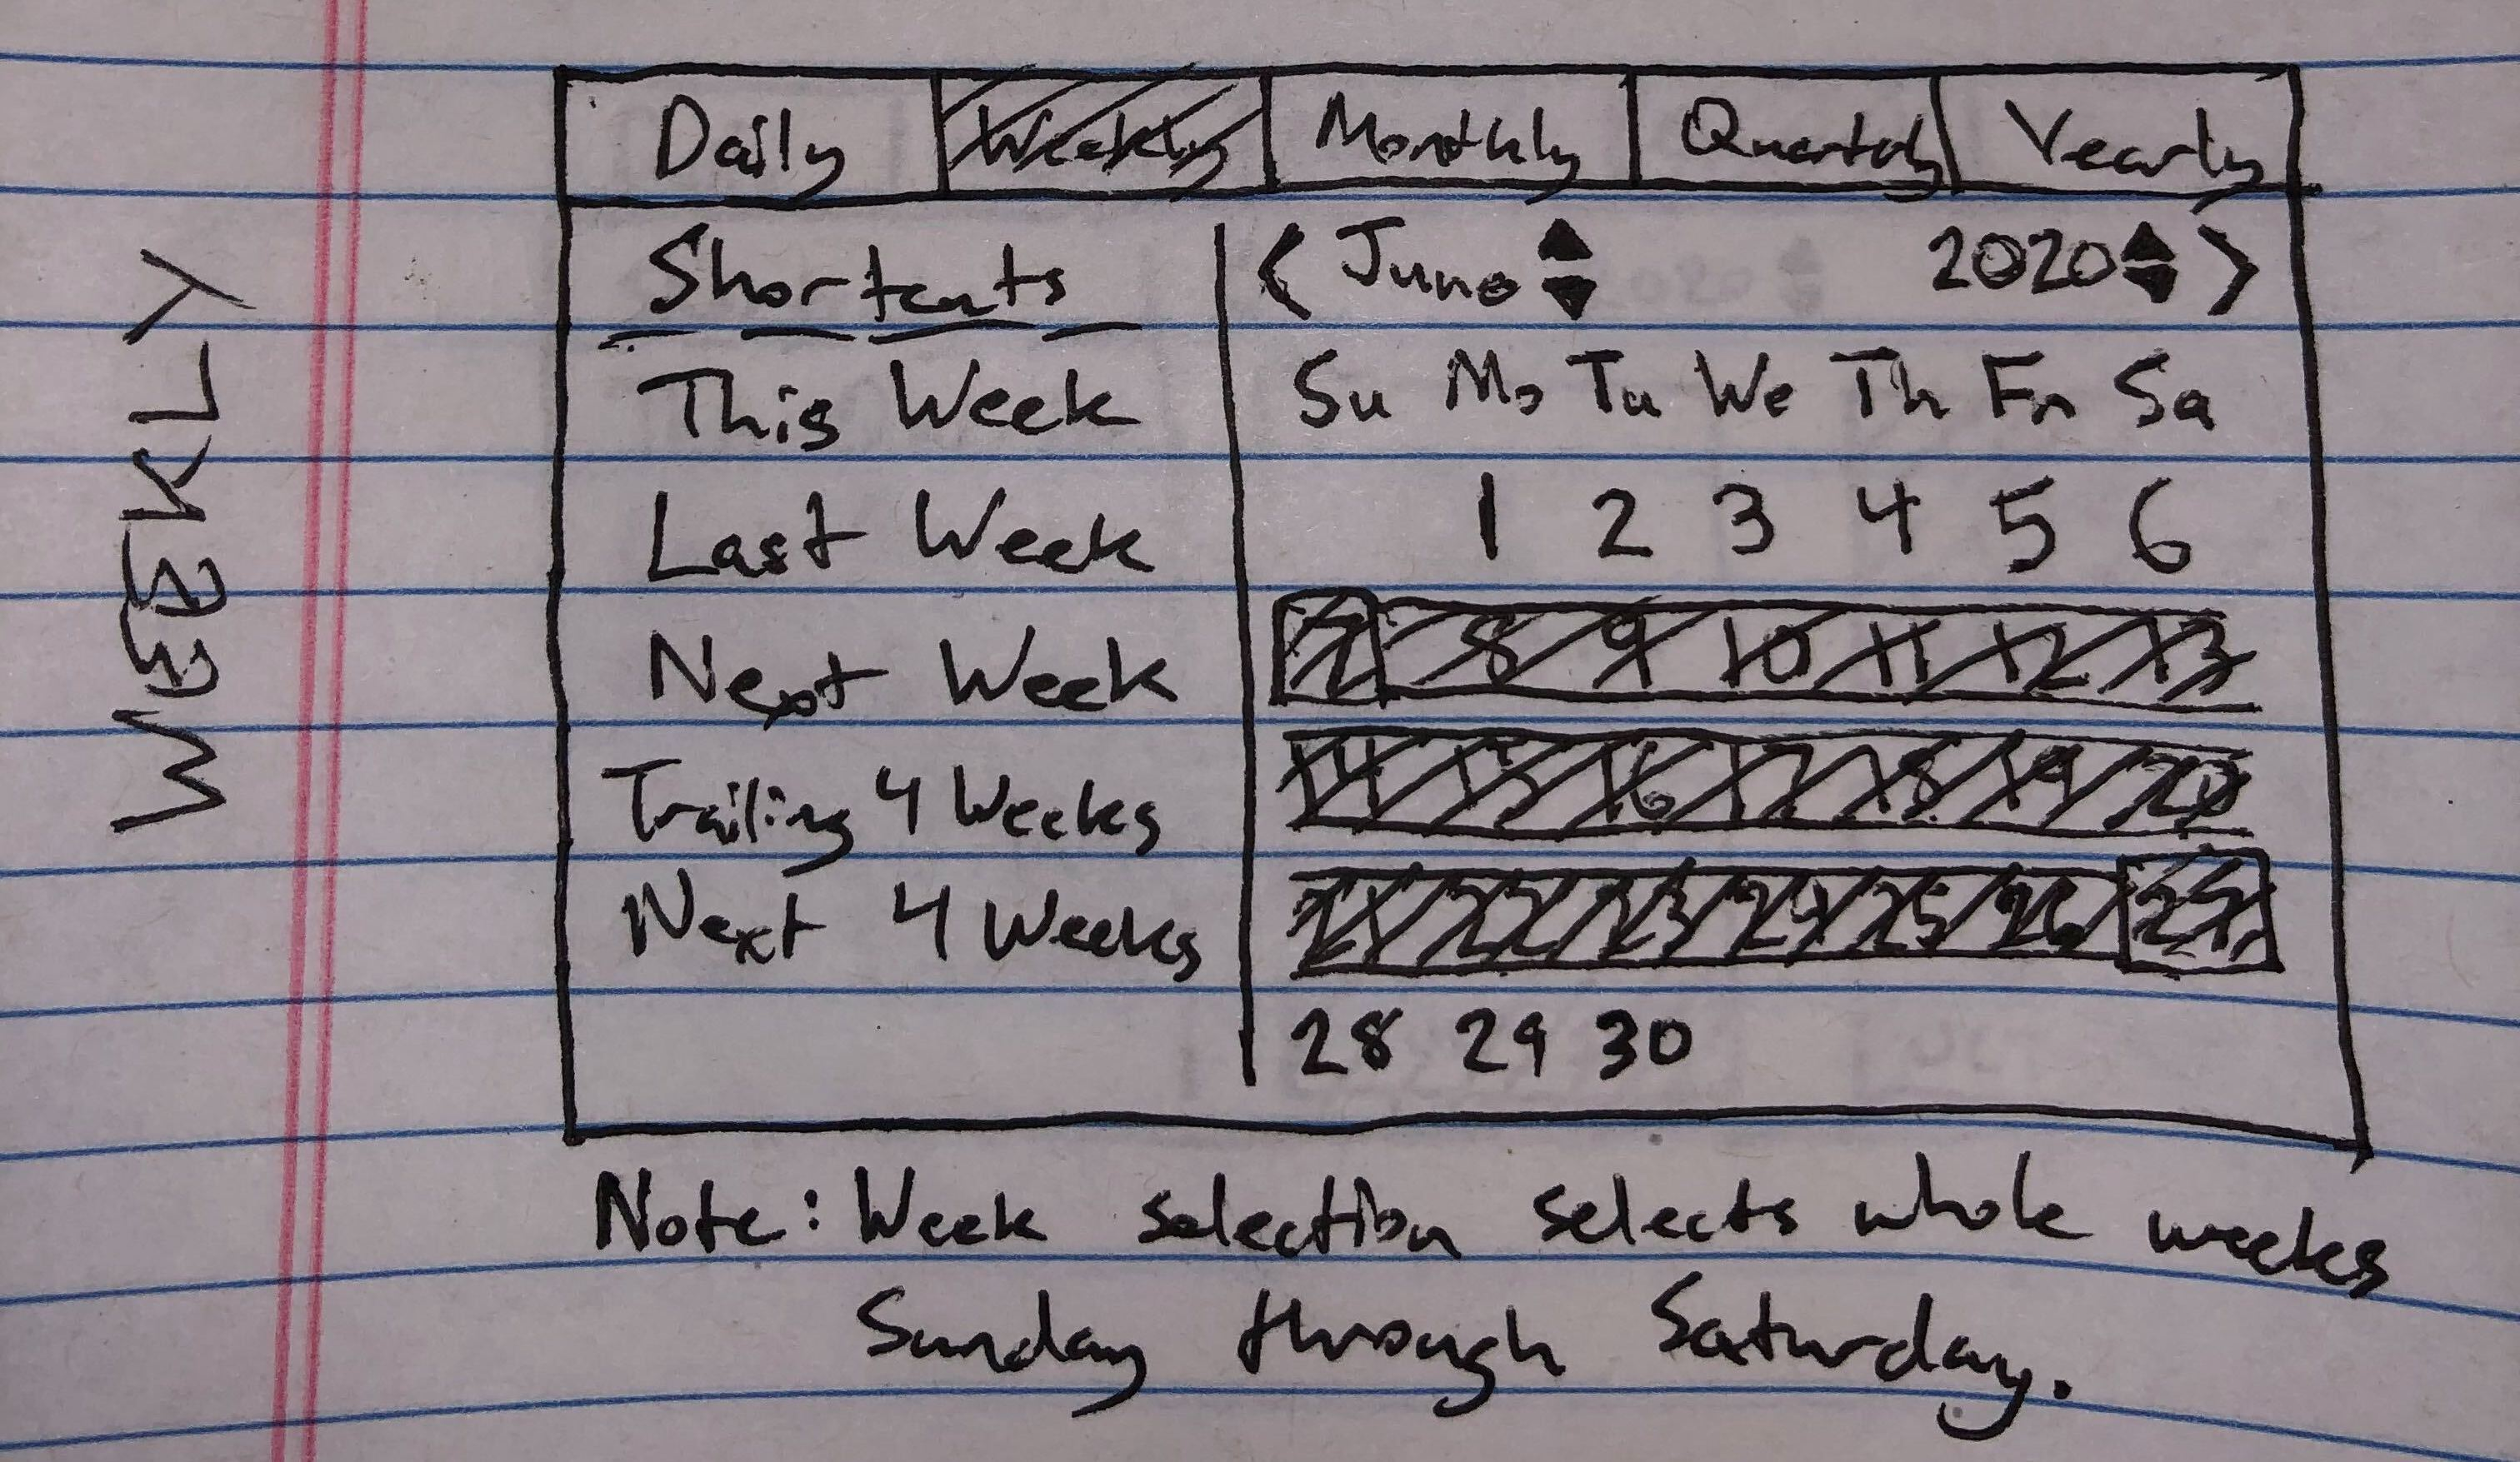 WEEKLY
Daily Weekly Monthly Quarterly Yearly
Shortcuts
This Week
Last Week
Next Week
Trailing 4 Weeks
Next 4 Weeks
< June ▲▼ 2020 ▲▼ >
Su Mo Tu We Th Fr Sa
1 2 3 4 5 6
7 8 9 10 11 12 13
14 15 16 17 18 19 20
21 22 23 24 25 26 27
28 29 30
Note: Week selection selects whole weeks
Sunday through Saturday.